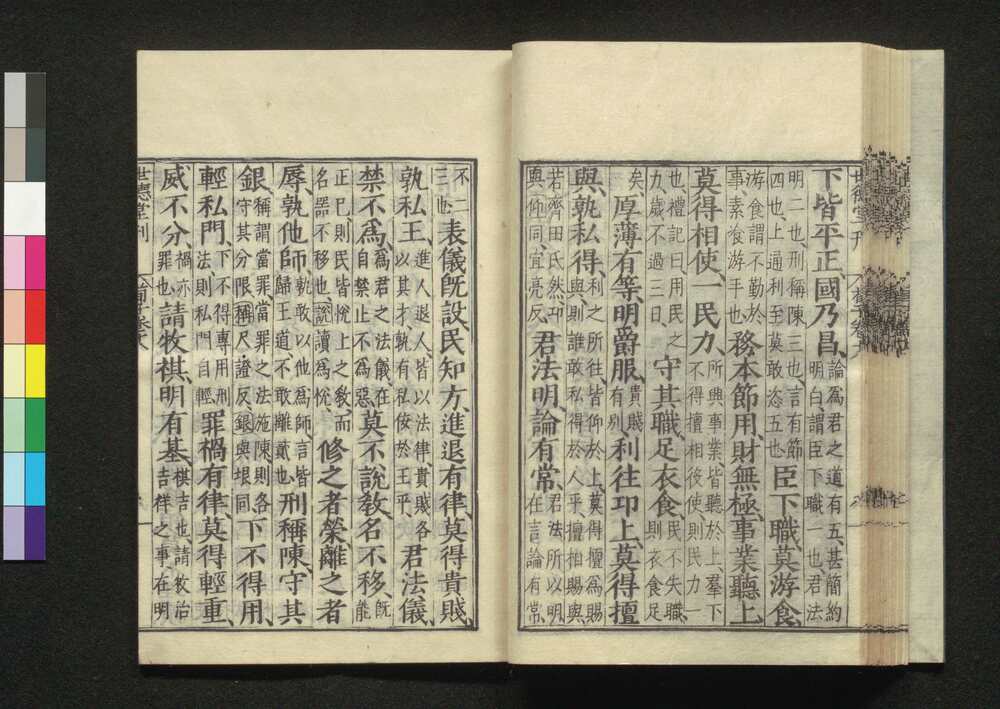 下皆平正國乃昌論爲君之道有五甚簡約明白謂臣下職一也君法
明二也刑稱陳三也言有節四也上通利至莫敢恣五也臣下職莫游食
游食謂不勤於事素飡游手也務本節用財無極事業聽上
莫得相使一民力所興事業皆聽於上羣下不得擅相役使則民力一
也禮記曰用民之力歲不過三日守其職足衣食民不失職則衣食足
矣厚薄有等明爵服貴賤有別利往卬上莫得擅
與孰私得利之所往皆仰於上莫得擅爲賜與則誰敢私得於人乎擅相賜與
若齊田氏然卬與仰同宜亮反君法明論有常君法所以明在言論有常
不二三也表儀旣設民知方進退有律莫得貴賤
孰私王進人退人皆以法律貴賤各以其才孰有私佞於王乎君法儀
禁不爲爲君之法儀在自禁止不爲惡莫不說敎名不移旣能
正己則民皆悅上之敎而名器不移也說讀爲悅修之者榮離之者
辱孰他師孰敢以他爲師言皆歸王道不敢離貳也刑稱陳守其
銀稱謂當罪當罪之法施陳則各守其分限稱尺證反銀與垠同下不得用
輕私門下不得專用刑法則私門自輕罪禍有律莫得輕重
威不分禍亦罪也請牧祺明有基祺吉也請牧治吉祥之事在明
世德堂刊